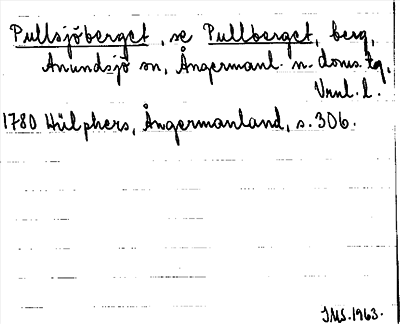 Pullsjöberget, se Pullberget, berg,
Anundsjö sn, Ångermanl. n. doms. tg,
Vnnl. l.
1780 Hülphers, Ångermanland, s. 306.
IMS. 1963.